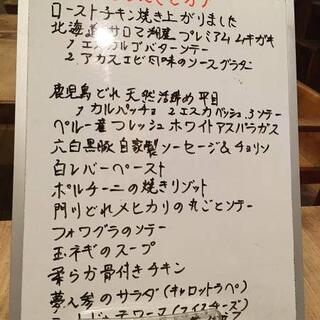 ローストチキン焼き上がりました
北海道サロマ湖産 プレミアム ムキガキ
1 エスカルゴバターソテー
2 アカスエビ風味のソースグラタン
鹿児島どれ 天然活〆め 平目
1 カルパッチョ 2 エスカベッシュ 3 ソテー
ペルー産フレッシュ ホワイトアスパラガス
六白黒豚自家製ソーセージ&チョリソ
白レバーペースト
ポルチーニの焼きリゾット
門川どれメヒカリの丸ごとソテー
フォワグラのソテー
玉ネギのスープ
柔らか骨付きチキン
夢人参のサラダ(キャロットラペ)
(スイスチーズ)